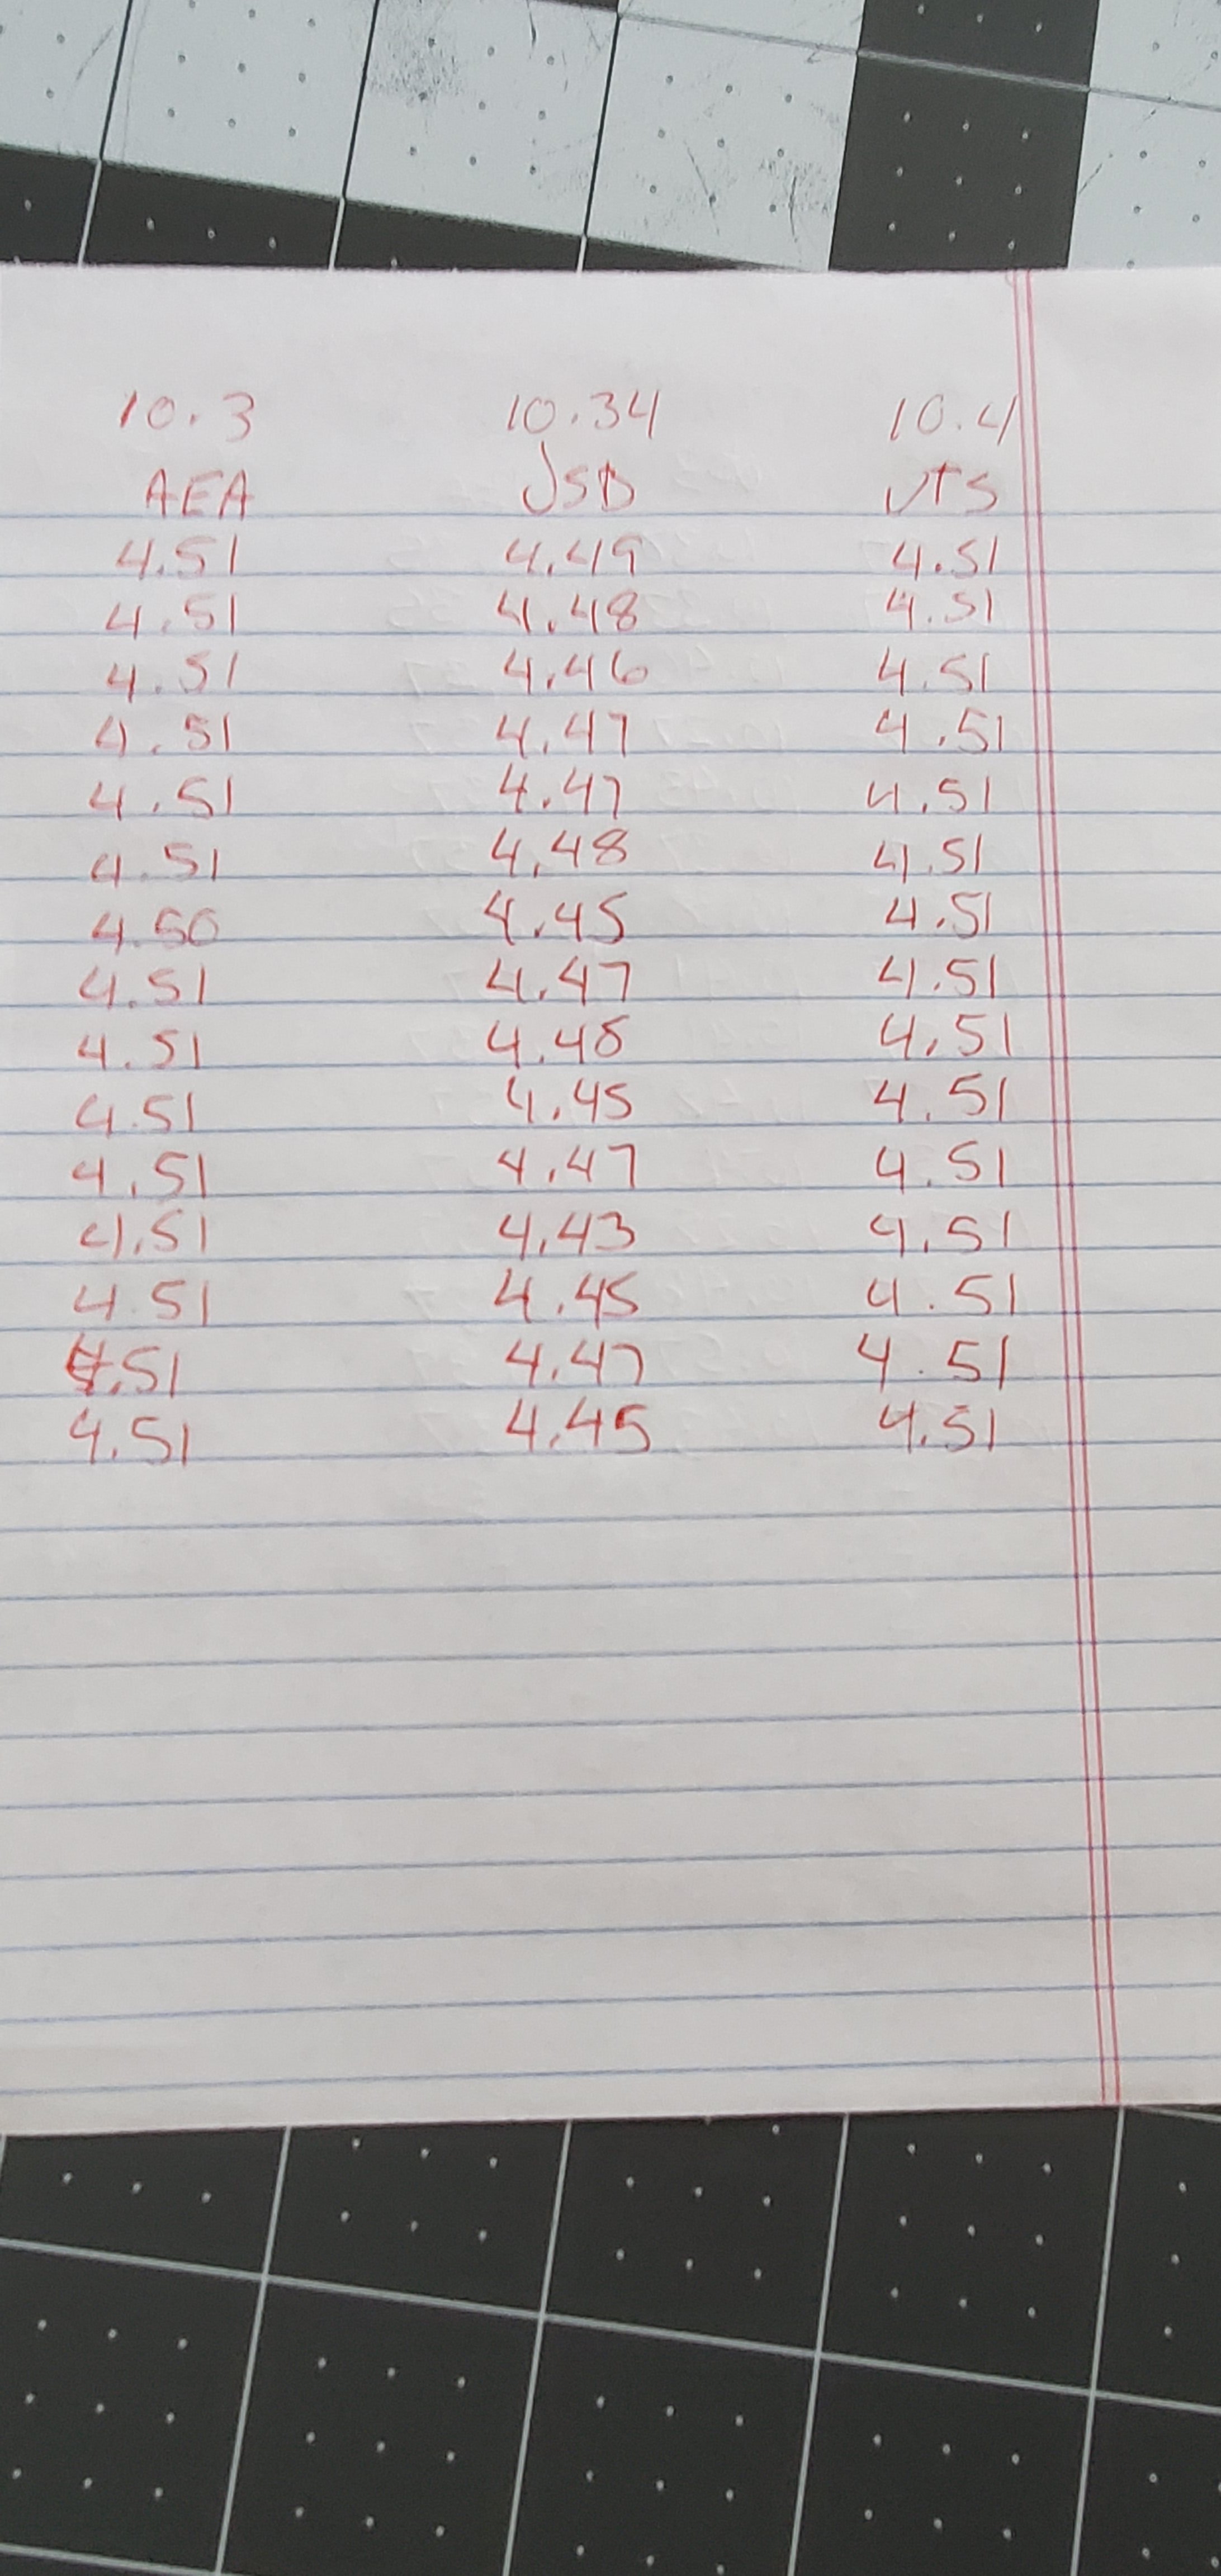 10.3 10.34 10.4
AEA JSD JTS
4.51 4.49 4.51
4.51 4.48 4.51
4.51 4.46 4.51
4.51 4.47 4.51
4.51 4.47 4.51
4.51 4.48 4.51
4.50 4.45 4.51
4.51 4.47 4.51
4.51 4.48 4.51
4.51 4.45 4.51
4.51 4.47 4.51
4.51 4.43 4.51
4.51 4.45 4.51
4.51 4.47 4.51
4.51 4.45 4.51